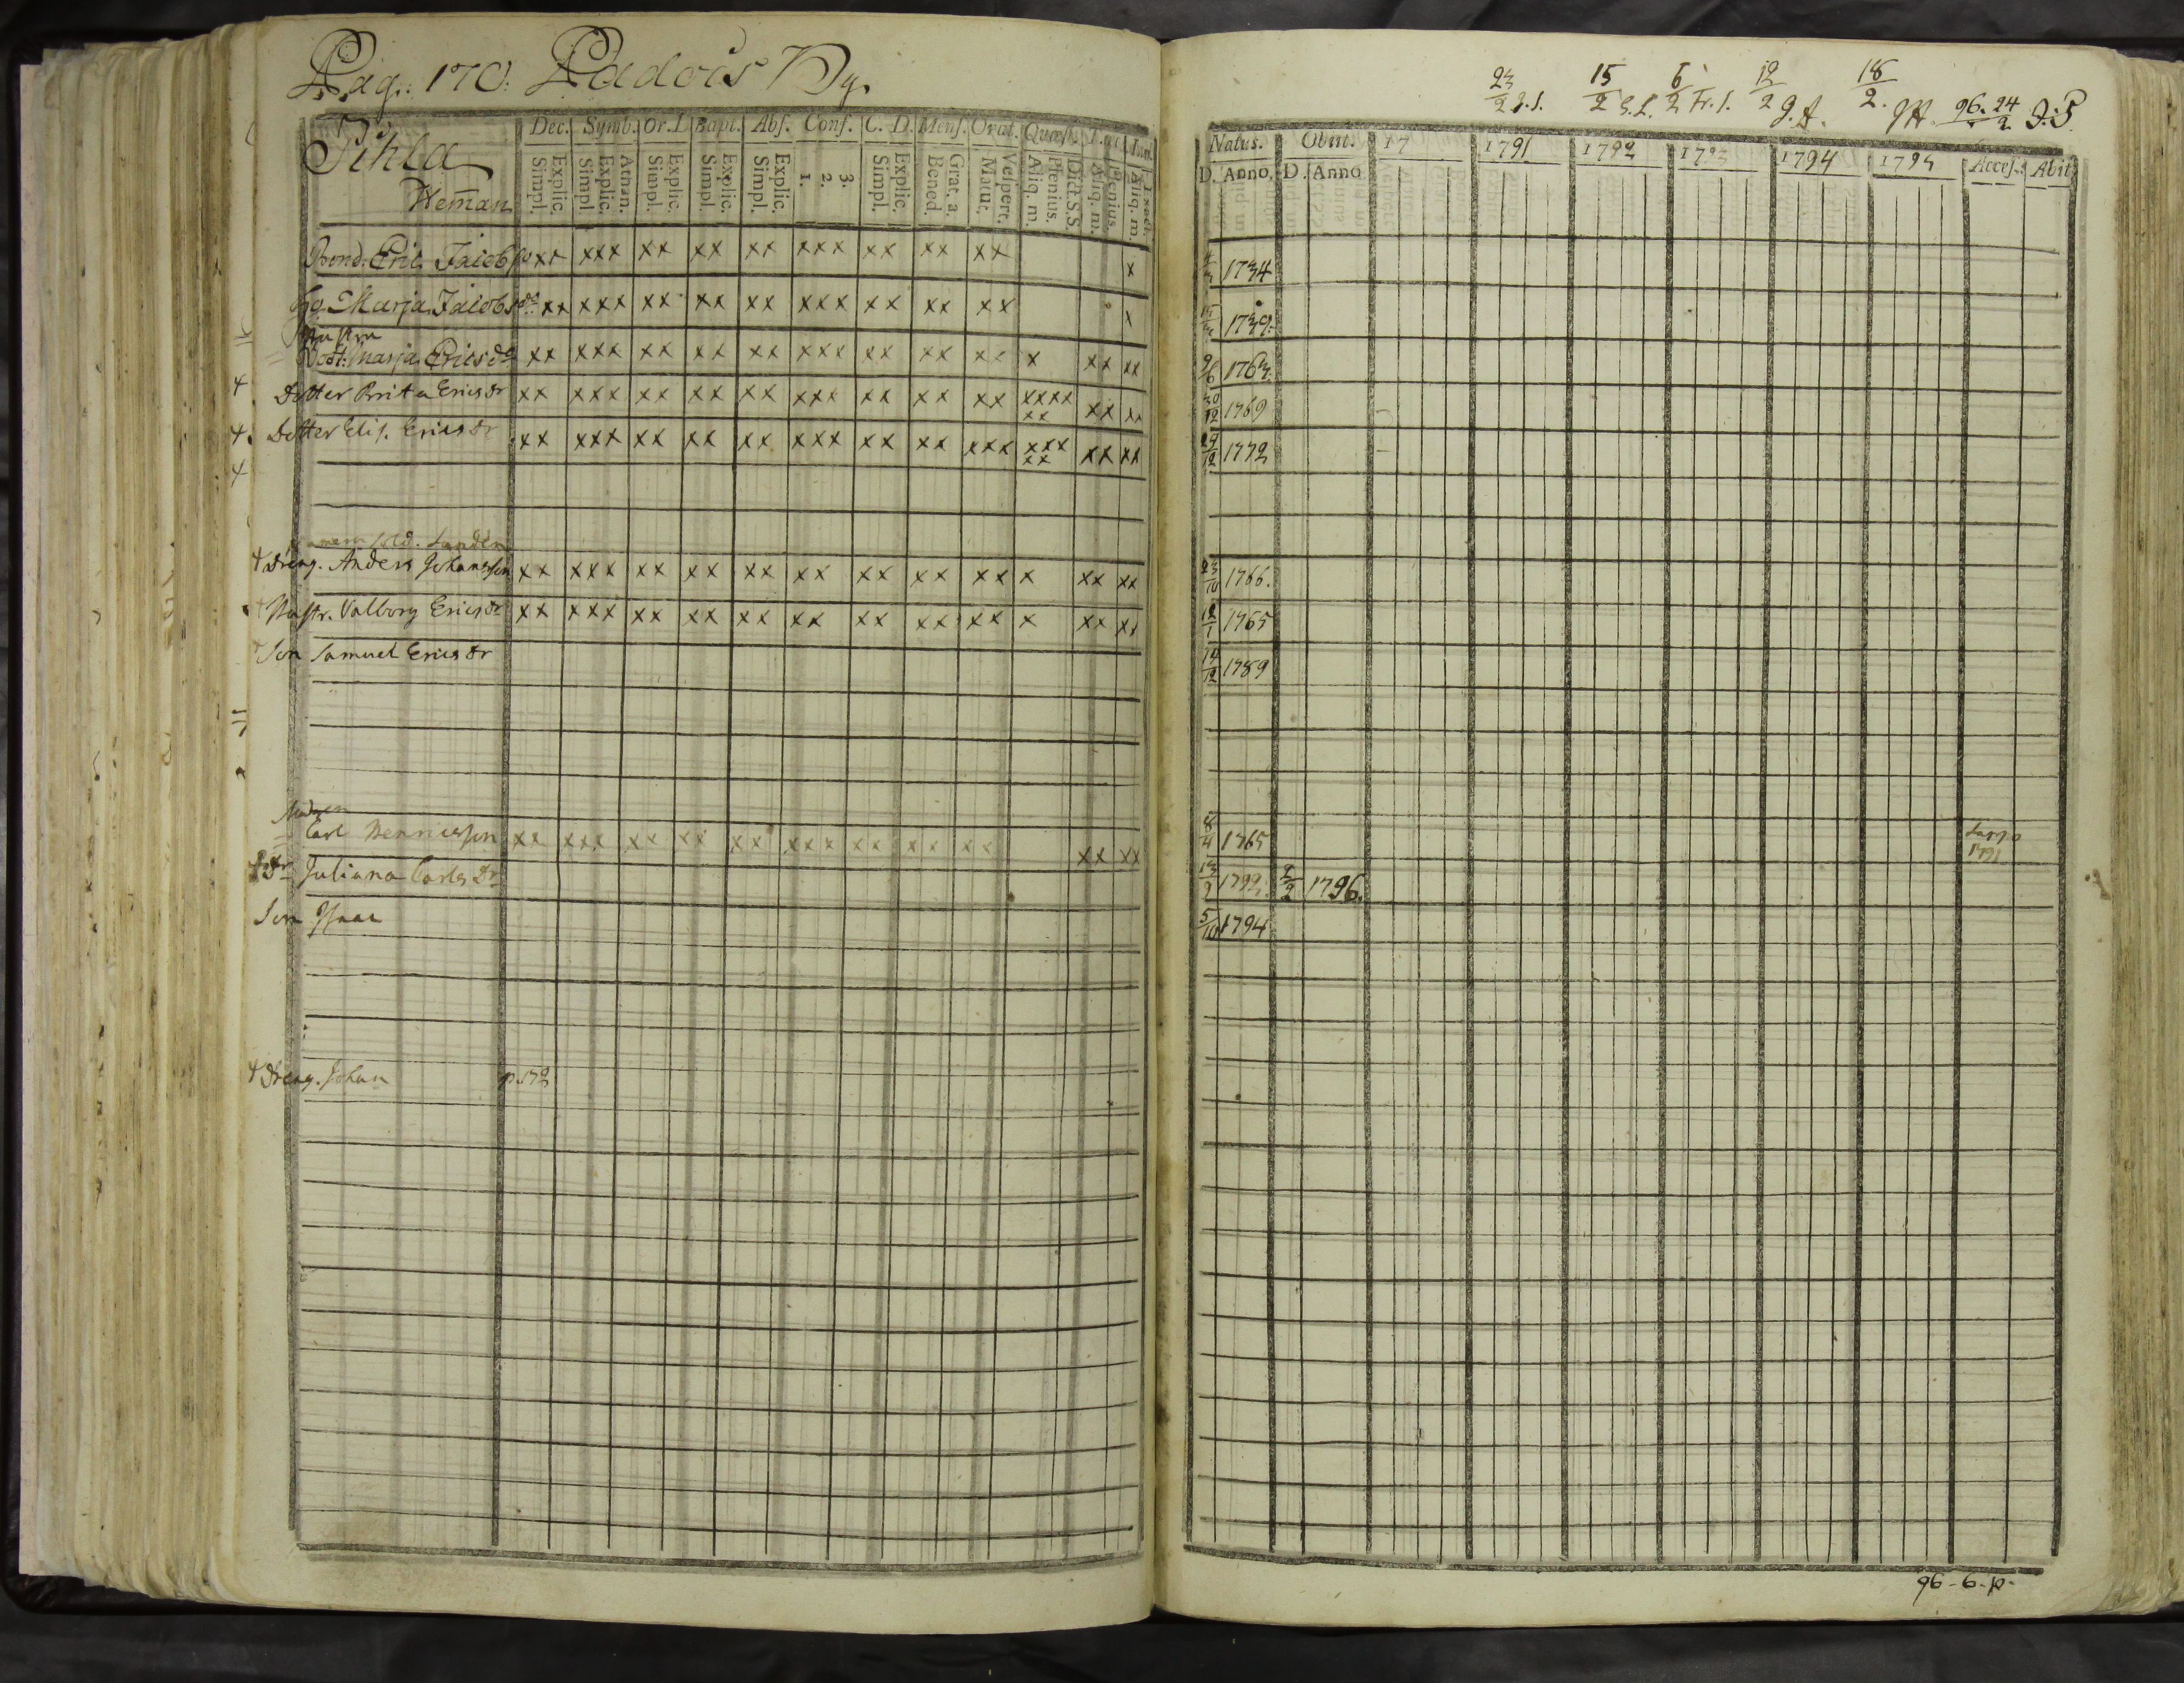 Pag: 170: Padois By.
Pihla
Hem̄an
Dec. Symb. Or. D. Bapt. Abs. Conf. C. D. Mens. Orat. Quæst.
Explic. Simpl. Athan. Explic. Simpl. Explic. Simpl. Explic. Simpl. Explic. Simpl. 3. 2. 1. Explic. Simpl. Grat. a. Bened. Vespert. Matut. Dict. S.S. Plenius. Aliq. m. Plenius. Aliq. m. Aliq. m.
Bond. Eric Jacobss xx xxx xx xx xx xxx xx xx xx x
Hu. Marja Jacobsdr xx xxx xx xx xx xxx xx xx xx
Hustru
Dott: Marja Ericsdr xx xxx xx xx xx xxx xx xx xx x xx xx
Dotter Brita Ericsdr xx xxx xx xx xx xxx xx xx xx xxxx xx xx xx
Dotter Elis. Ericsdr xx xxx xx xx xx xxx xx xx xxx xxx xx xx xx
sold. Landén
Dreng. Anders Johansson xx xxx xx xx xx xx xx xx xx x xx xx
Hustr. Valborg Ericsdr xx xxx xx xx xx xx xx xx xx x xx xx
Son Samuel Ericsdr
Carl Henricsson xx xxx xx xx xx xxx xx xx xx xx xx
Dr Juliana Carlsdr
Son Isaac
Dreng. Johan p. 172
23/2 J.S. 15/2 E.L. 6/2 Fr. S. 12/2 J.A. 18/2. 96. 24/2 J.P.
Natus. Obiit. 17 1791 1792 1793 1794 1795 Acces. Abit
D. Anno. D. Anno
1734
1739.
1763.
30/12 1769
29/12 1772
23/10 1766.
12/1 1765
14/12 1789
8/4 1765
1791
13/9 1792 2/2 1796.
5/10 1794
96-6-p.